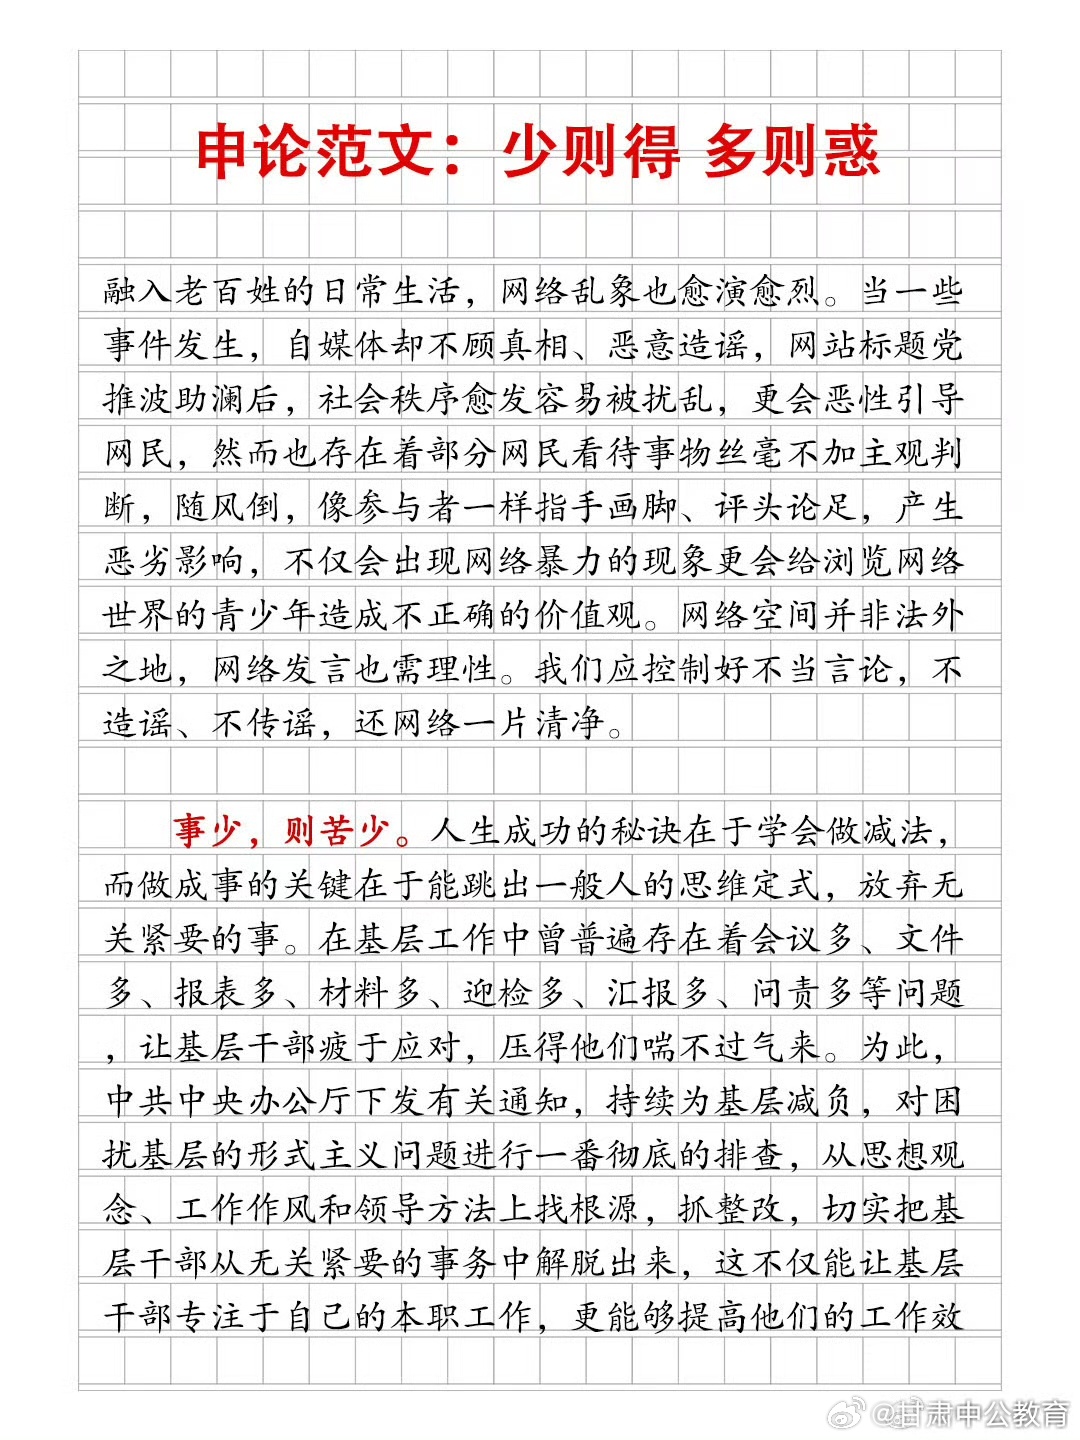 申论范文：少则得 多则惑
融入老百姓的日常生活，网络乱象也愈演愈烈。当一些
事件发生，自媒体却不顾真相、恶意造谣，网站标题党
推波助澜后，社会秩序愈发容易被扰乱，更会恶性引导
网民，然而也存在着部分网民看待事物丝毫不加主观判
断，随风倒，像参与者一样指手画脚、评头论足，产生
恶劣影响，不仅会出现网络暴力的现象更会给浏览网络
世界的青少年造成不正确的价值观。网络空间并非法外
之地，网络发言也需理性。我们应控制好不当言论，不
造谣、不传谣，还网络一片清净。
事少，则苦少。人生成功的秘诀在于学会做减法，
而做成事的关键在于能跳出一般人的思维定式，放弃无
关紧要的事。在基层工作中曾普遍存在着会议多、文件
多、报表多、材料多、迎检多、汇报多、问责多等问题
，让基层干部疲于应对，压得他们喘不过气来。为此，
中共中央办公厅下发有关通知，持续为基层减负，对困
扰基层的形式主义问题进行一番彻底的排查，从思想观
念、工作作风和领导方法上找根源，抓整改，切实把基
层干部从无关紧要的事务中解脱出来，这不仅能让基层
干部专注于自己的本职工作，更能够提高他们的工作效
@甘肃中公教育